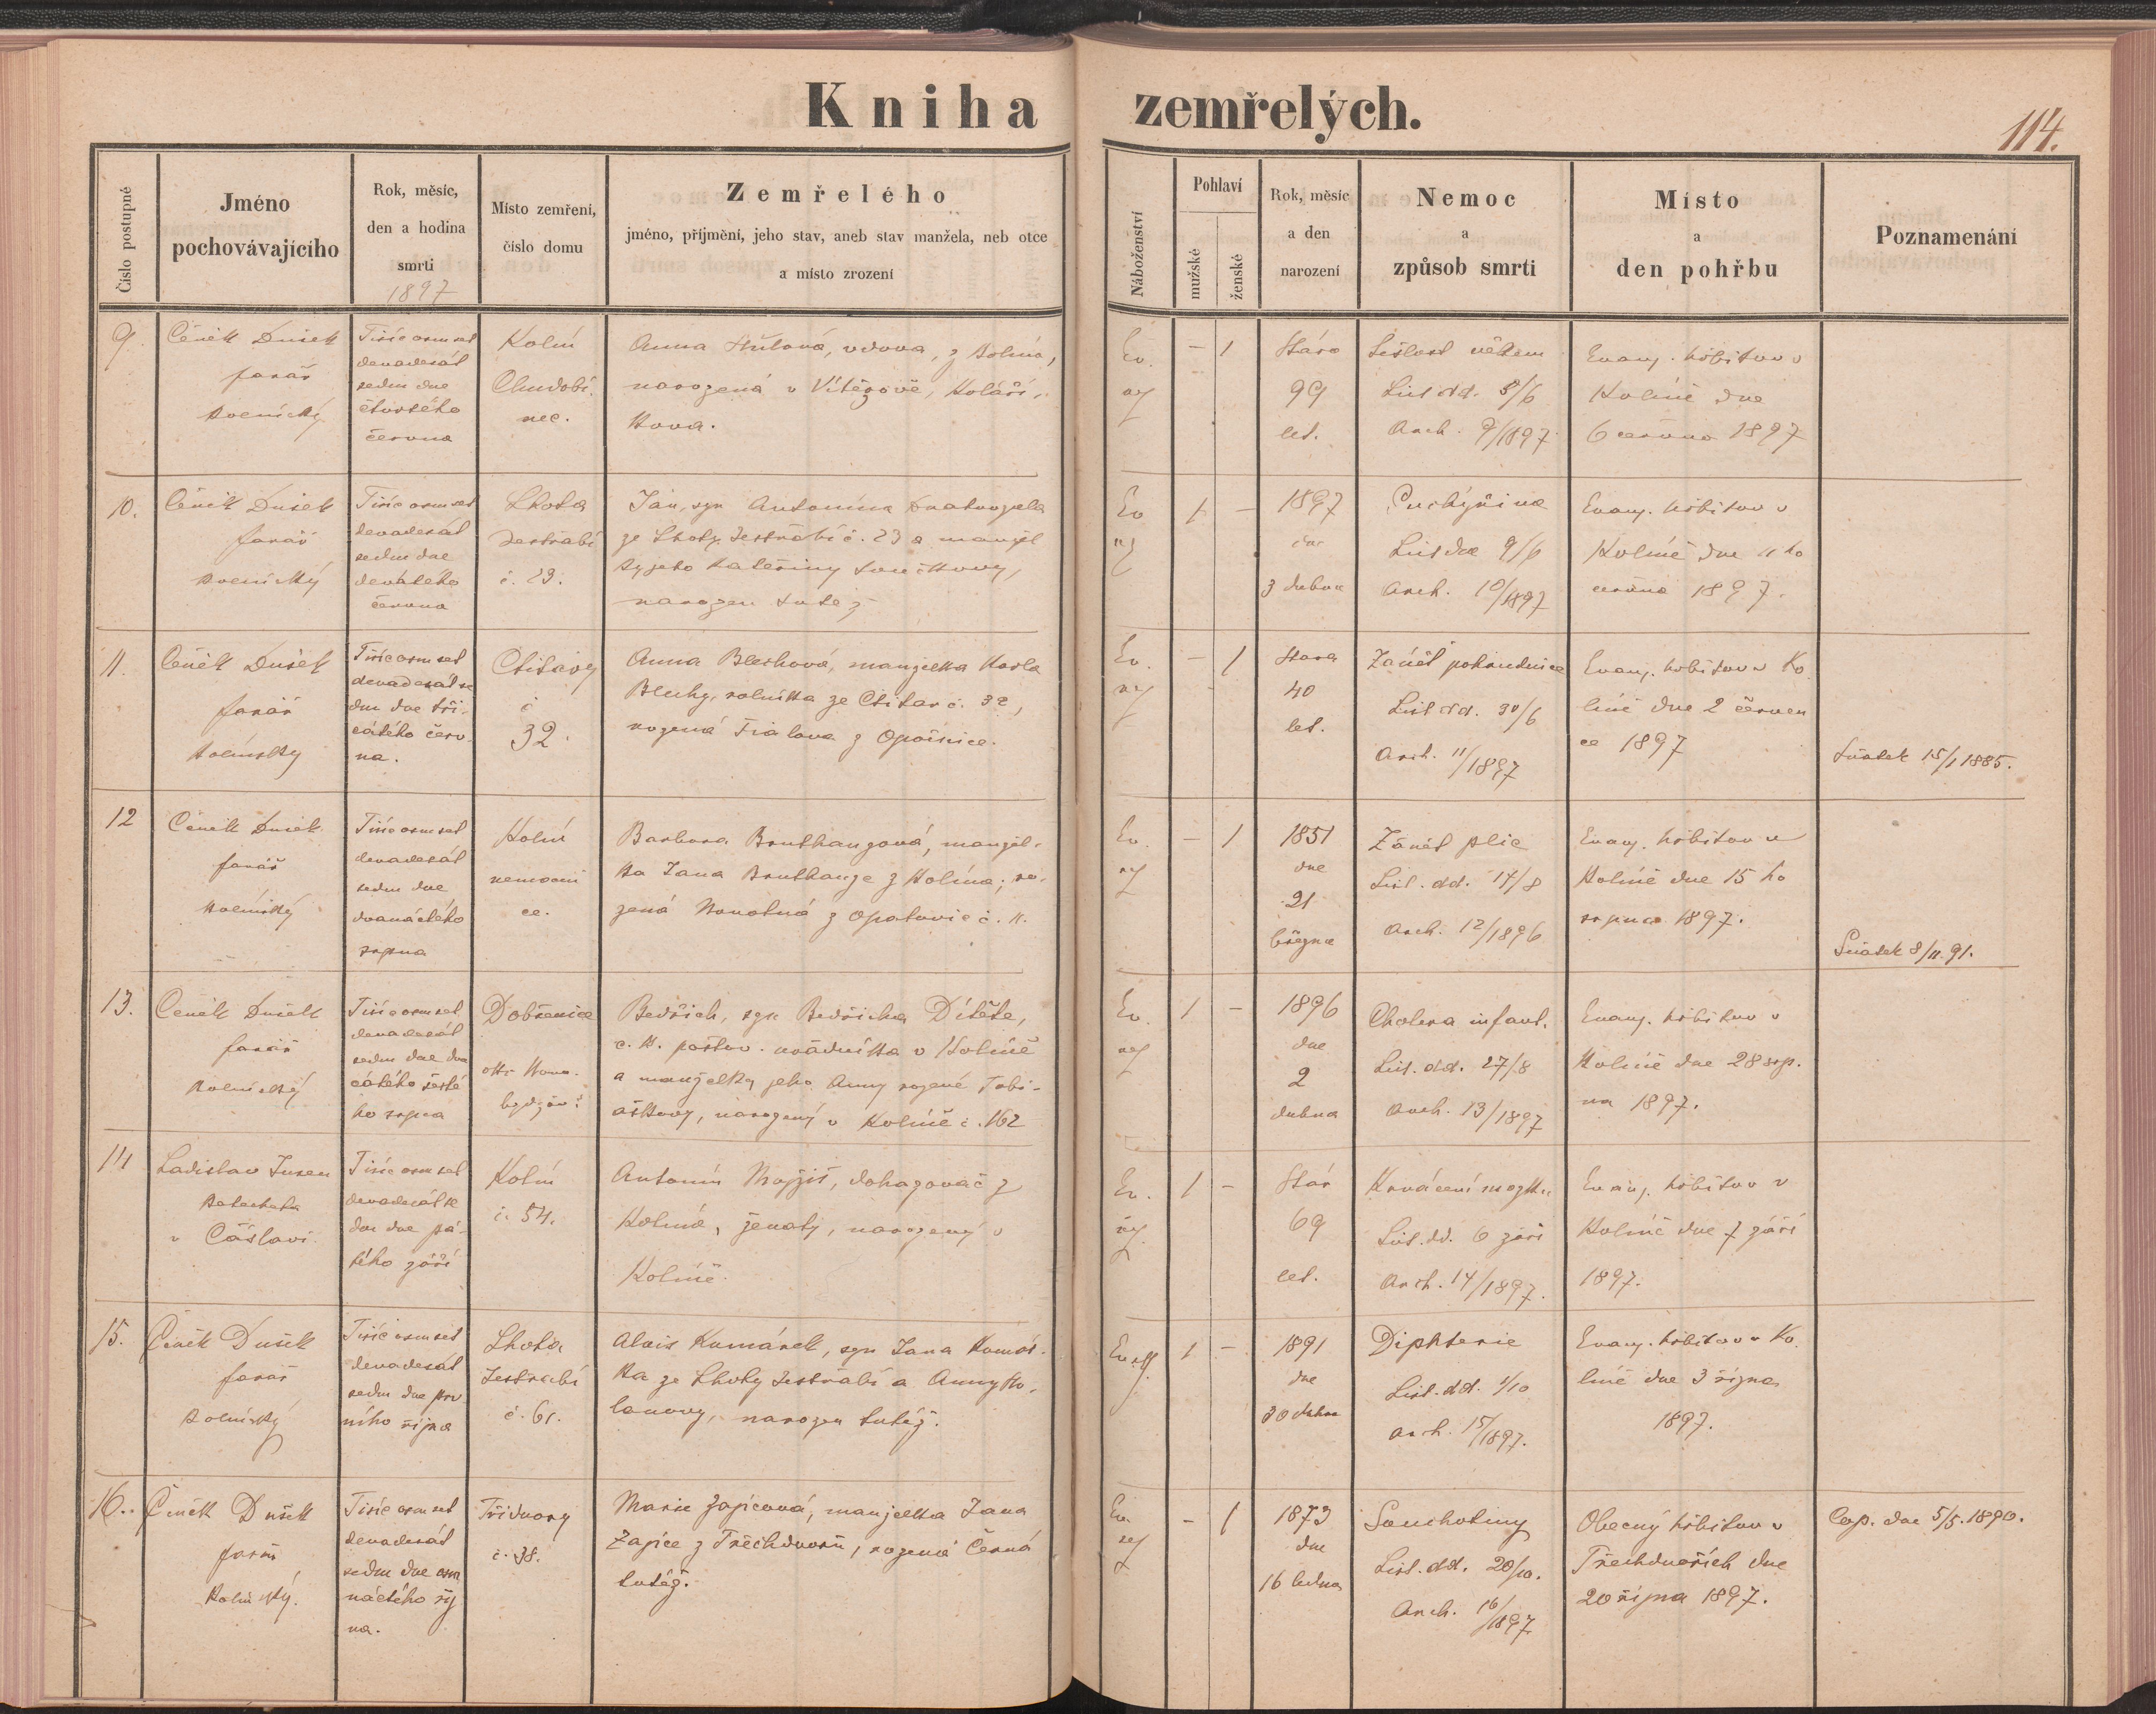 Kniha zemřelých.
114.
Číslo postupné
Jméno
pochovávajícího
Rok, měsíc,
den a hodina
smrti
1897
Místo zemření,
číslo domu
Zemřelého
jméno, příjmění, jeho stav, aneb stav manžela, neb otce
a místo zrození
Náboženství
Pohlaví
mužské
ženské
Rok, měsíc
a den
narození
Nemoc
a
způsob smrti
Místo
a
den pohřbu
Poznamenání
9.
Čeněk Dušek
farář
kolínský
Tisíc osm set
devadesát
sedm dne
čtvrtého
června
Kolín
Chudobi
nec.
Anna vdova, z Kolína,
narozená v Vítězově, Koláři,
kova.
Ev.
ref
– 1
Stáro
99
let.
Sešlost věkem
List dd. 5/6
Arch. 9/1897
Evang. hřbitov v
Kolíně dne
6 června 1897
10.
Čeněk Dušek
farář
kolínský
Tisíc osm set
devadesát
sedm dne
devátého
června
Lhota
Jestrabí
č. 23.
Jan, syn Antonína
ze Lhoty Jestřábí č. 23 a manžel
ky jeho Kateřiny
narozen tutéž
Ev
ref
1 –
1897
dne
3 dubna
List dne 9/6
Arch. 10/1897
Evang. hřbitov v
Kolíně dne 11 ho
června 1897.
11.
Čeněk Dušek
farář
kolínský
Tisíc osm set
devadesát se
dm dne tři
cátého červ
na.
Ctitary
č
32.
Anna Blechová, manželka Karla
Blechy, rolníka ze Ctitar č. 32,
rozená Fialova z Opočnice.
Ev.
ref
– 1
Stara
40
let.
Zánět pohrudnice
List dd. 30/6
Arch. 11/1897
Evang. hřbitov v Ko
líně dne 2 červen
ce 1897
Sňatek 15/1 1885.
12
Čeněk Dušek
farář
kolínský
Tisíc osm set
devadesát
sedm dne
dvanáctého
srpna
Kolín
nemocni
ce.
Barbora Bruthanzová, manžel-
ka Jana Bruthanze z Kolína, ro-
zená Novotná z Opatovic č. 11.
Ev.
ref
– 1
1851
dne
21
března
Zánět plic
List. dd. 14/8
Arch. 12/1896
Evang. hřbitov v
Kolíně dne 15 ho
srpna 1897.
Sňatek 8/11 91.
13.
Čeněk Dušek
farář
kolínský
Tisíc osm set
devadesát
sedm dne dva
cátého šesté
ho srpna
Dobřenice
okr. Novo-
bydžov.
Bedřich, syn Bedřicha Dítěte,
c. k. poštov. úředníka v Kolíně
a manželky jeho Anny rozené Tobi-
áškovy, narozený v Kolíně č. 162
Ev.
ref
1 –
1896
dne
2
dubna
Cholera infant.
List. dd. 27/8
Arch. 13/1897
Evang. hřbitov v
Kolíně dne 28 srp.
na 1897.
14
Ladislav
v Čáslavi
Tisíc osm set
devadesát se
dm dne pá-
tého září
Kolín
č. 54.
Antonín dohazovač z
Kolína, ženatý, narozený v
Kolíně.
Ev.
ref.
1 –
Stár
69
let.
Krvácení mozku
List. dd. 6 září
Arch. 14/1897.
Evang. hřbitov v
Kolíně dne 7 září
1897.
15.
Čeněk Dušek
farář
kolínský
Tisíc osm set
devadesát
sedm dne prv
ního října
Lhota
Jestřabí
č. 61.
Alois Komárek, syn Jana Komár-
ka ze Lhoty Jestřabí a Anny Ko-
lanovy, narozen tutéž.
Ev. ref.
1 –
1891
dne
30 dubna
Diphterie
List. dd. 1/10
Arch. 15/1897.
Evang. hřbitov v Ko
líně dne 3 října
1897.
16.
Čeněk Dušek
farář
Kolínský.
Tisíc osm set
devadesát
sedm dne osm
náctého říj
na.
Tři dvory
č. 38.
Marie Zajícová, manželka Jana
Zajíce z Třech dvorů, rozená Černá
tutéž.
Ev.
ref
– 1
1873
dne
16 ledna
Souchotiny
List. dd. 20/10.
Arch. 16/1897
Obecný hřbitov v
Třechdvořích dne
20 října 1897.
Cop. dne 5/5. 1890.